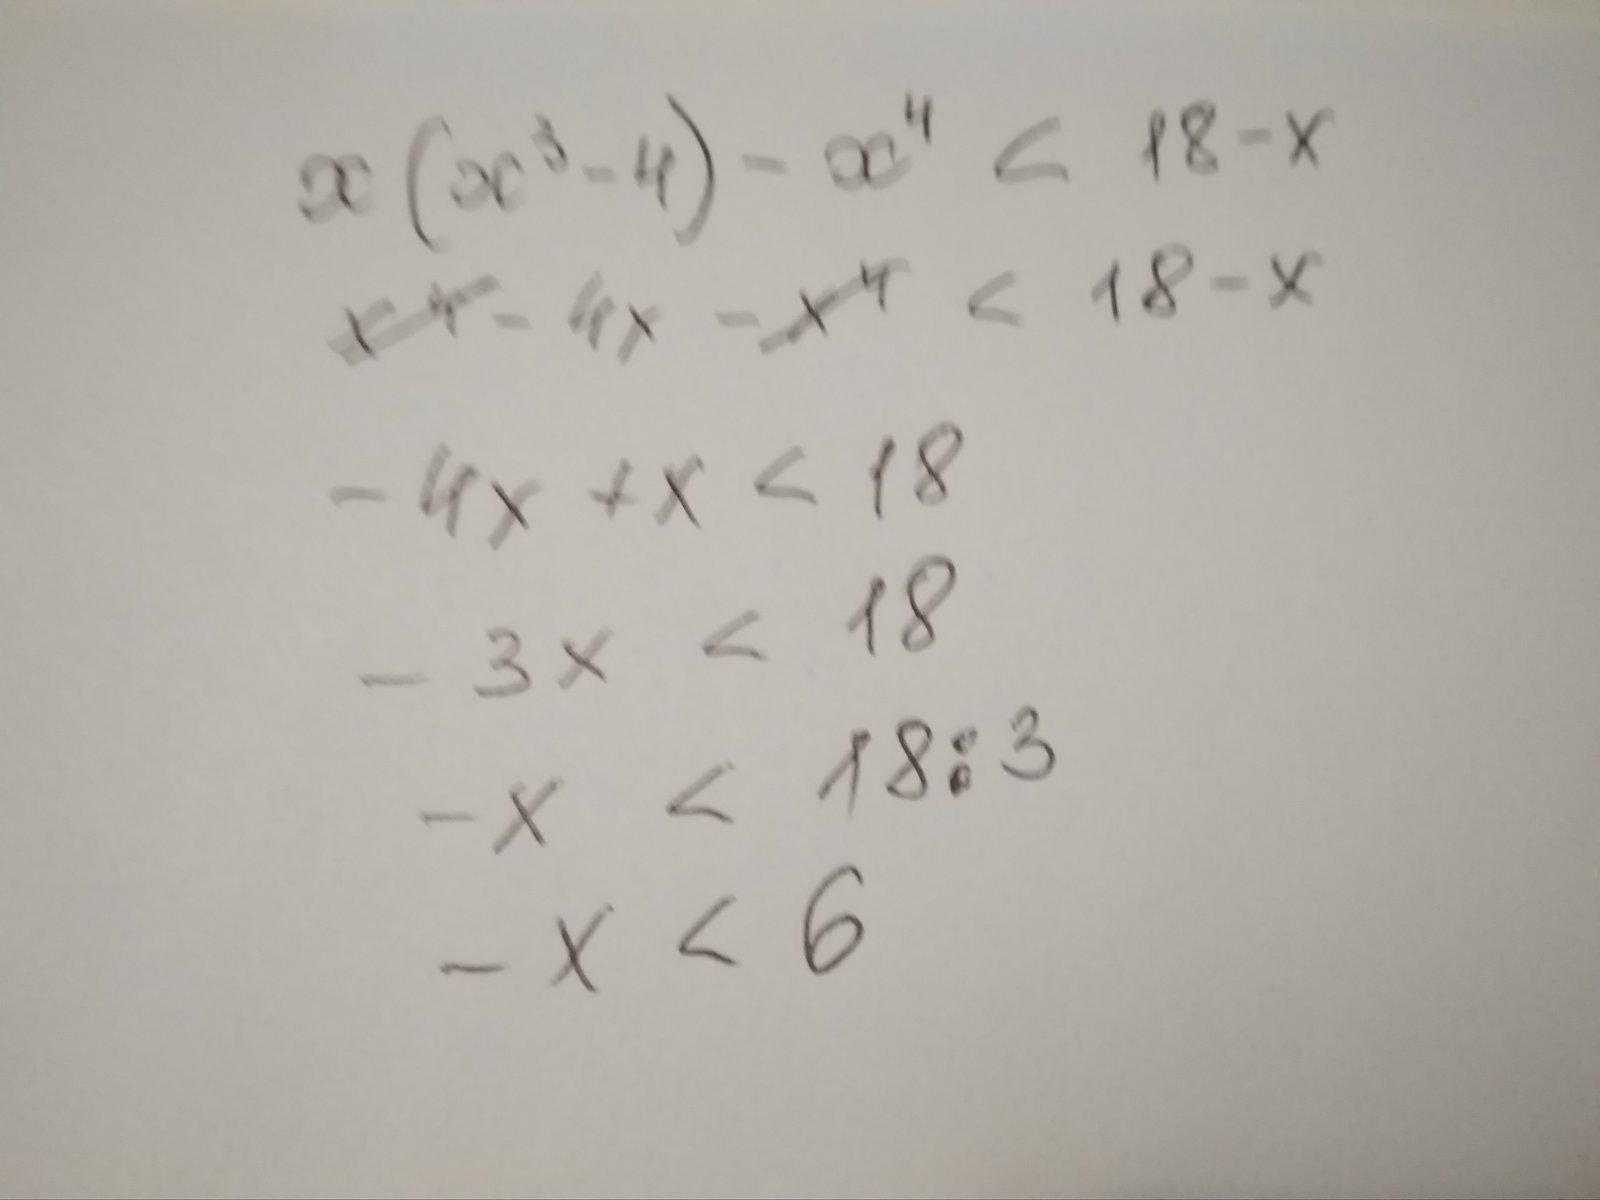 x(x³-4) - x⁴ < 18-x
x⁴ - 4x - x⁴ < 18-x
- 4x + x < 18
- 3x < 18
- x < 18:3
- x < 6